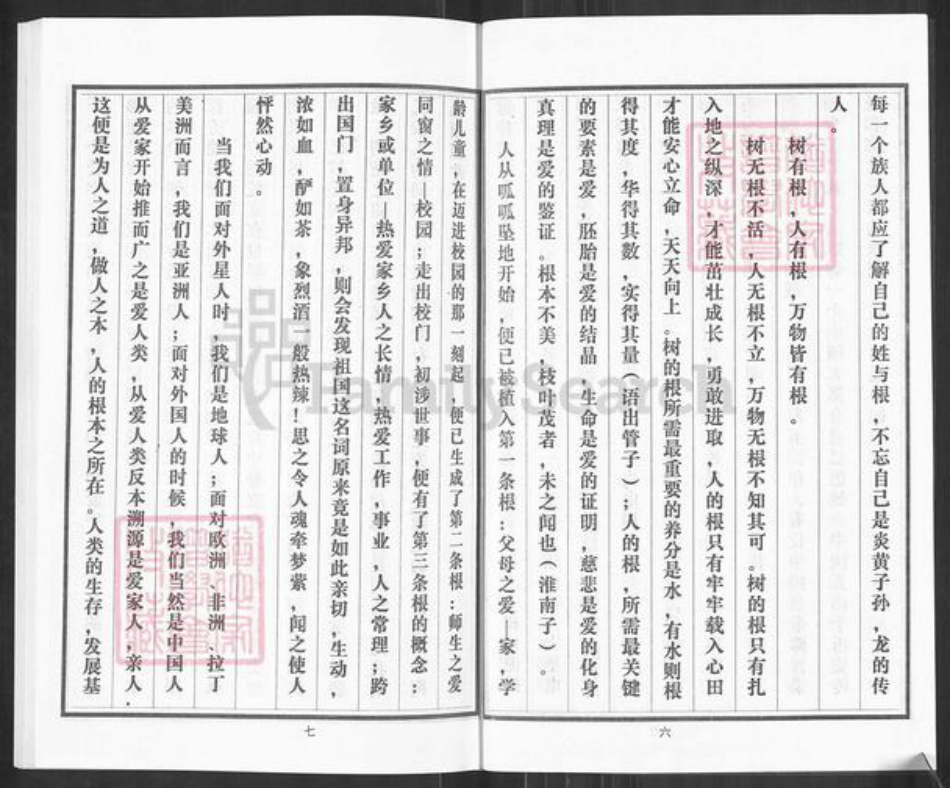 每一个族人都应了解自己的姓与根，不忘自己是炎黄子孙，龙的传
人。
树有根，人有根，万物皆有根。
树无根不活，人无根不立，万物无根不知其可。树的根只有扎
入地之纵深，才能茁壮成长，勇敢进取，人的根只有牢牢载入心田
才能安心立命，天天向上。树的根所需最重要的养分是水，有水则根
得其度，华得其数，实得其量（语出管子）；人的根，所需最关键
的要素是爱，胚胎是爱的结晶，生命是爱的证明，慈悲是爱的化身
真理是爱的鉴证。根本不美，枝叶茂者，未之闻也（淮南子）。
人从呱呱坠地开始，便已被植入第一条根：父母之爱—家，学
六
龄儿童，在迈进校园的那一刻起，便已生成了第二条根：师生之爱
同窗之情—校园；走出校门，初涉世事，便有了第三条根的概念：
家乡或单位—热爱家乡人之长情，热爱工作，事业，人之常理；跨
出国门，置身异邦，则会发现祖国这名词原来竟是如此亲切，生动，
浓如血，酽如茶，象烈酒一般热辣！思之令人魂牵梦萦，闻之使人
怦然心动。
当我们面对外星人时，我们是地球人；面对欧洲、非洲、拉丁
美洲而言，我们是亚洲人；面对外国人的时候，我们当然是中国人
从爱家开始推而广之是爱人类，从爱人类反本溯源是爱家人，亲人，
这便是为人之道，做人之本，人的根本之所在。人类的生存，发展基
七
FamilySearch